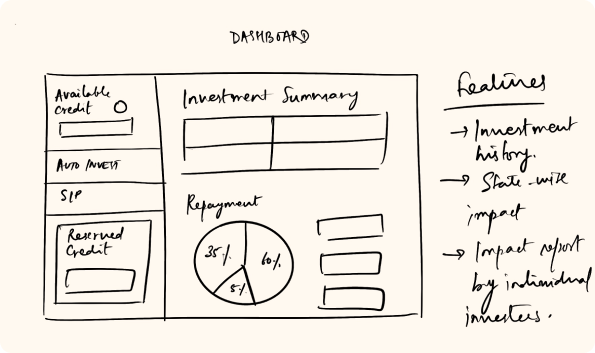 DASHBOARD
Available
Credit
AUTO INVEST
SIP
Reserved
Credit
Investment Summary
Repayment
35%
60%
5%
Features
→ Investment
history.
→ State-wise
impact
→ Impact report
by individual
investers.